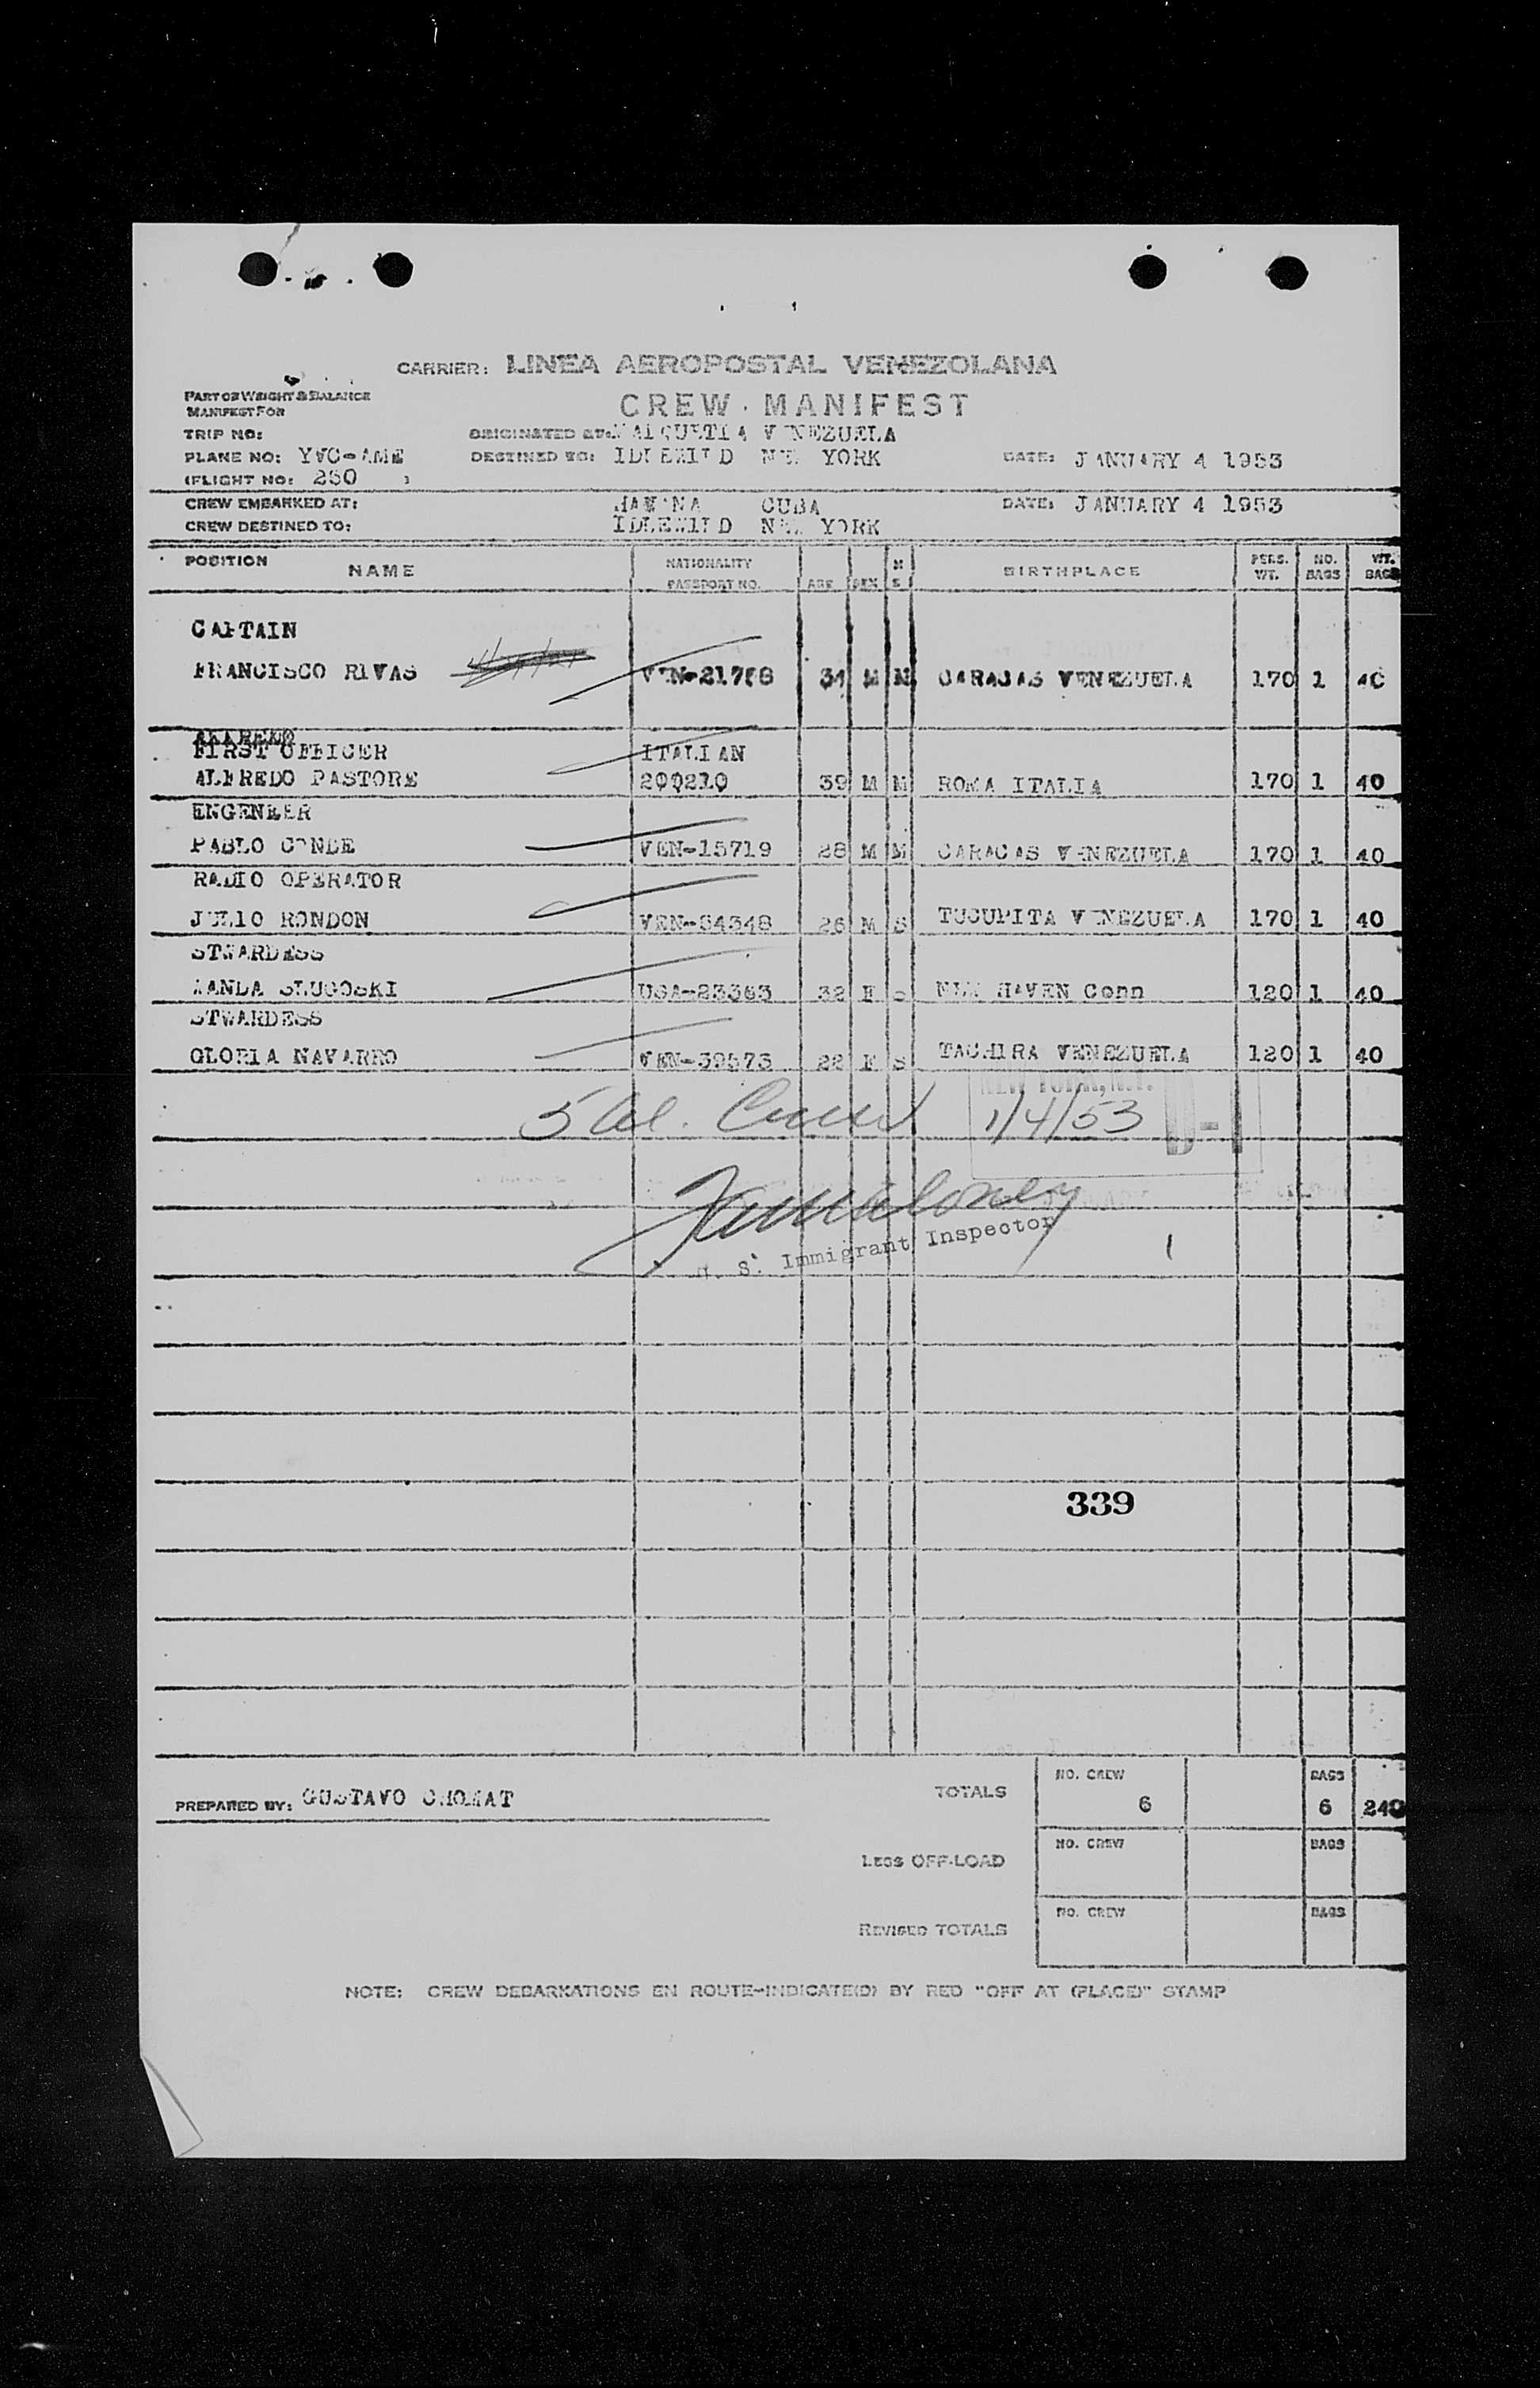 CARRIER: LINEA AEROPOSTAL VENEZOLANA
PART OF WEIGHT & BALANCE
MANIFEST FOR
CREW MANIFEST
TRIP NO:
ORIGINATED AT: MAIQUETIA VENEZUELA
PLANE NO: YVC-AME
DESTINED TO: IDLEWILD NEW YORK
DATE: JANUARY 4 1953
(FLIGHT NO: 250 )
CREW EMBARKED AT: HAVANA CUBA
DATE: JANUARY 4 1953
CREW DESTINED TO: IDLEWILD NEW YORK
POSITION NAME NATIONALITY PASSPORT NO. AGE SEX M S BIRTHPLACE PERS. WT. NO. BAGS WT. BAGS
CAPTAIN
FRANCISCO RIVAS VEN-21758 34 M M CARACAS VENEZUELA 170 1 40
ALFREDO
FIRST OFFICER ITALIAN
ALFREDO PASTORE 200210 39 M M ROMA ITALIA 170 1 40
ENGENEER
PABLO CONDE VEN-15719 28 M M CARACAS VENEZUELA 170 1 40
RADIO OPERATOR
JULIO RONDON VEN-54348 26 M S TUCUPITA VENEZUELA 170 1 40
STWARDESS
WANDA SLUGOSKI USA-23363 32 F S NEW HAVEN Conn 120 1 40
STWARDESS
GLORIA NAVARRO VEN-39573 22 F S TACHIRA VENEZUELA 120 1 40
NEW YORK, N.Y.
5 al. Crew 1/4/53 D-1
U. S. Immigrant Inspector
339
PREPARED BY: GUSTAVO CHOMAT
TOTALS NO. CREW 6 BAGS 6 240
LESS OFF-LOAD NO. CREW BAGS
REVISED TOTALS NO. CREW BAGS
NOTE: CREW DEBARKATIONS EN ROUTE-INDICATE(D) BY RED "OFF AT (PLACE)" STAMP